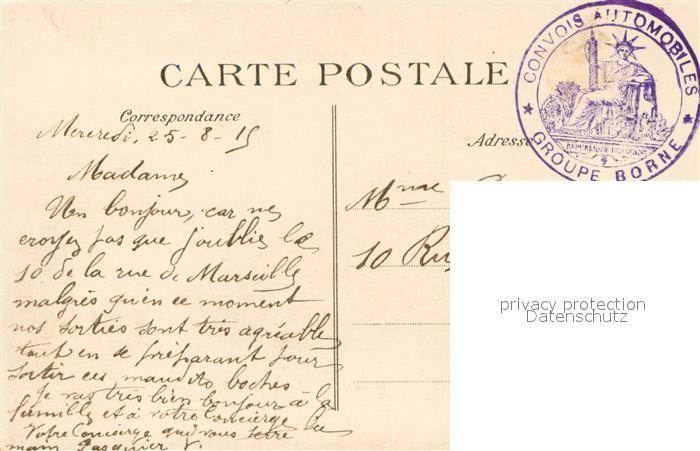 CARTE POSTALE
CONVOIS AUTOMOBILES
REPUBLIQUE FRANCAISE
4
GROUPE BORNE
Correspondance
Mercredi, 25-8-15
Madame,
Un bonjour, car ne
croyez pas que j'oublie le
10 de la rue de Marseille
malgrès qu'en ce moment
nos sorties sont très agréable
tout en se préparant pour
sortir ces maudits boches
Je vas très bien bonjour à la
famille et à votre Concierge
Votre Concierge qui vous serre la
main Pasquier V.
Adresse
Mme
10 Ru
privacy protection
Datenschutz